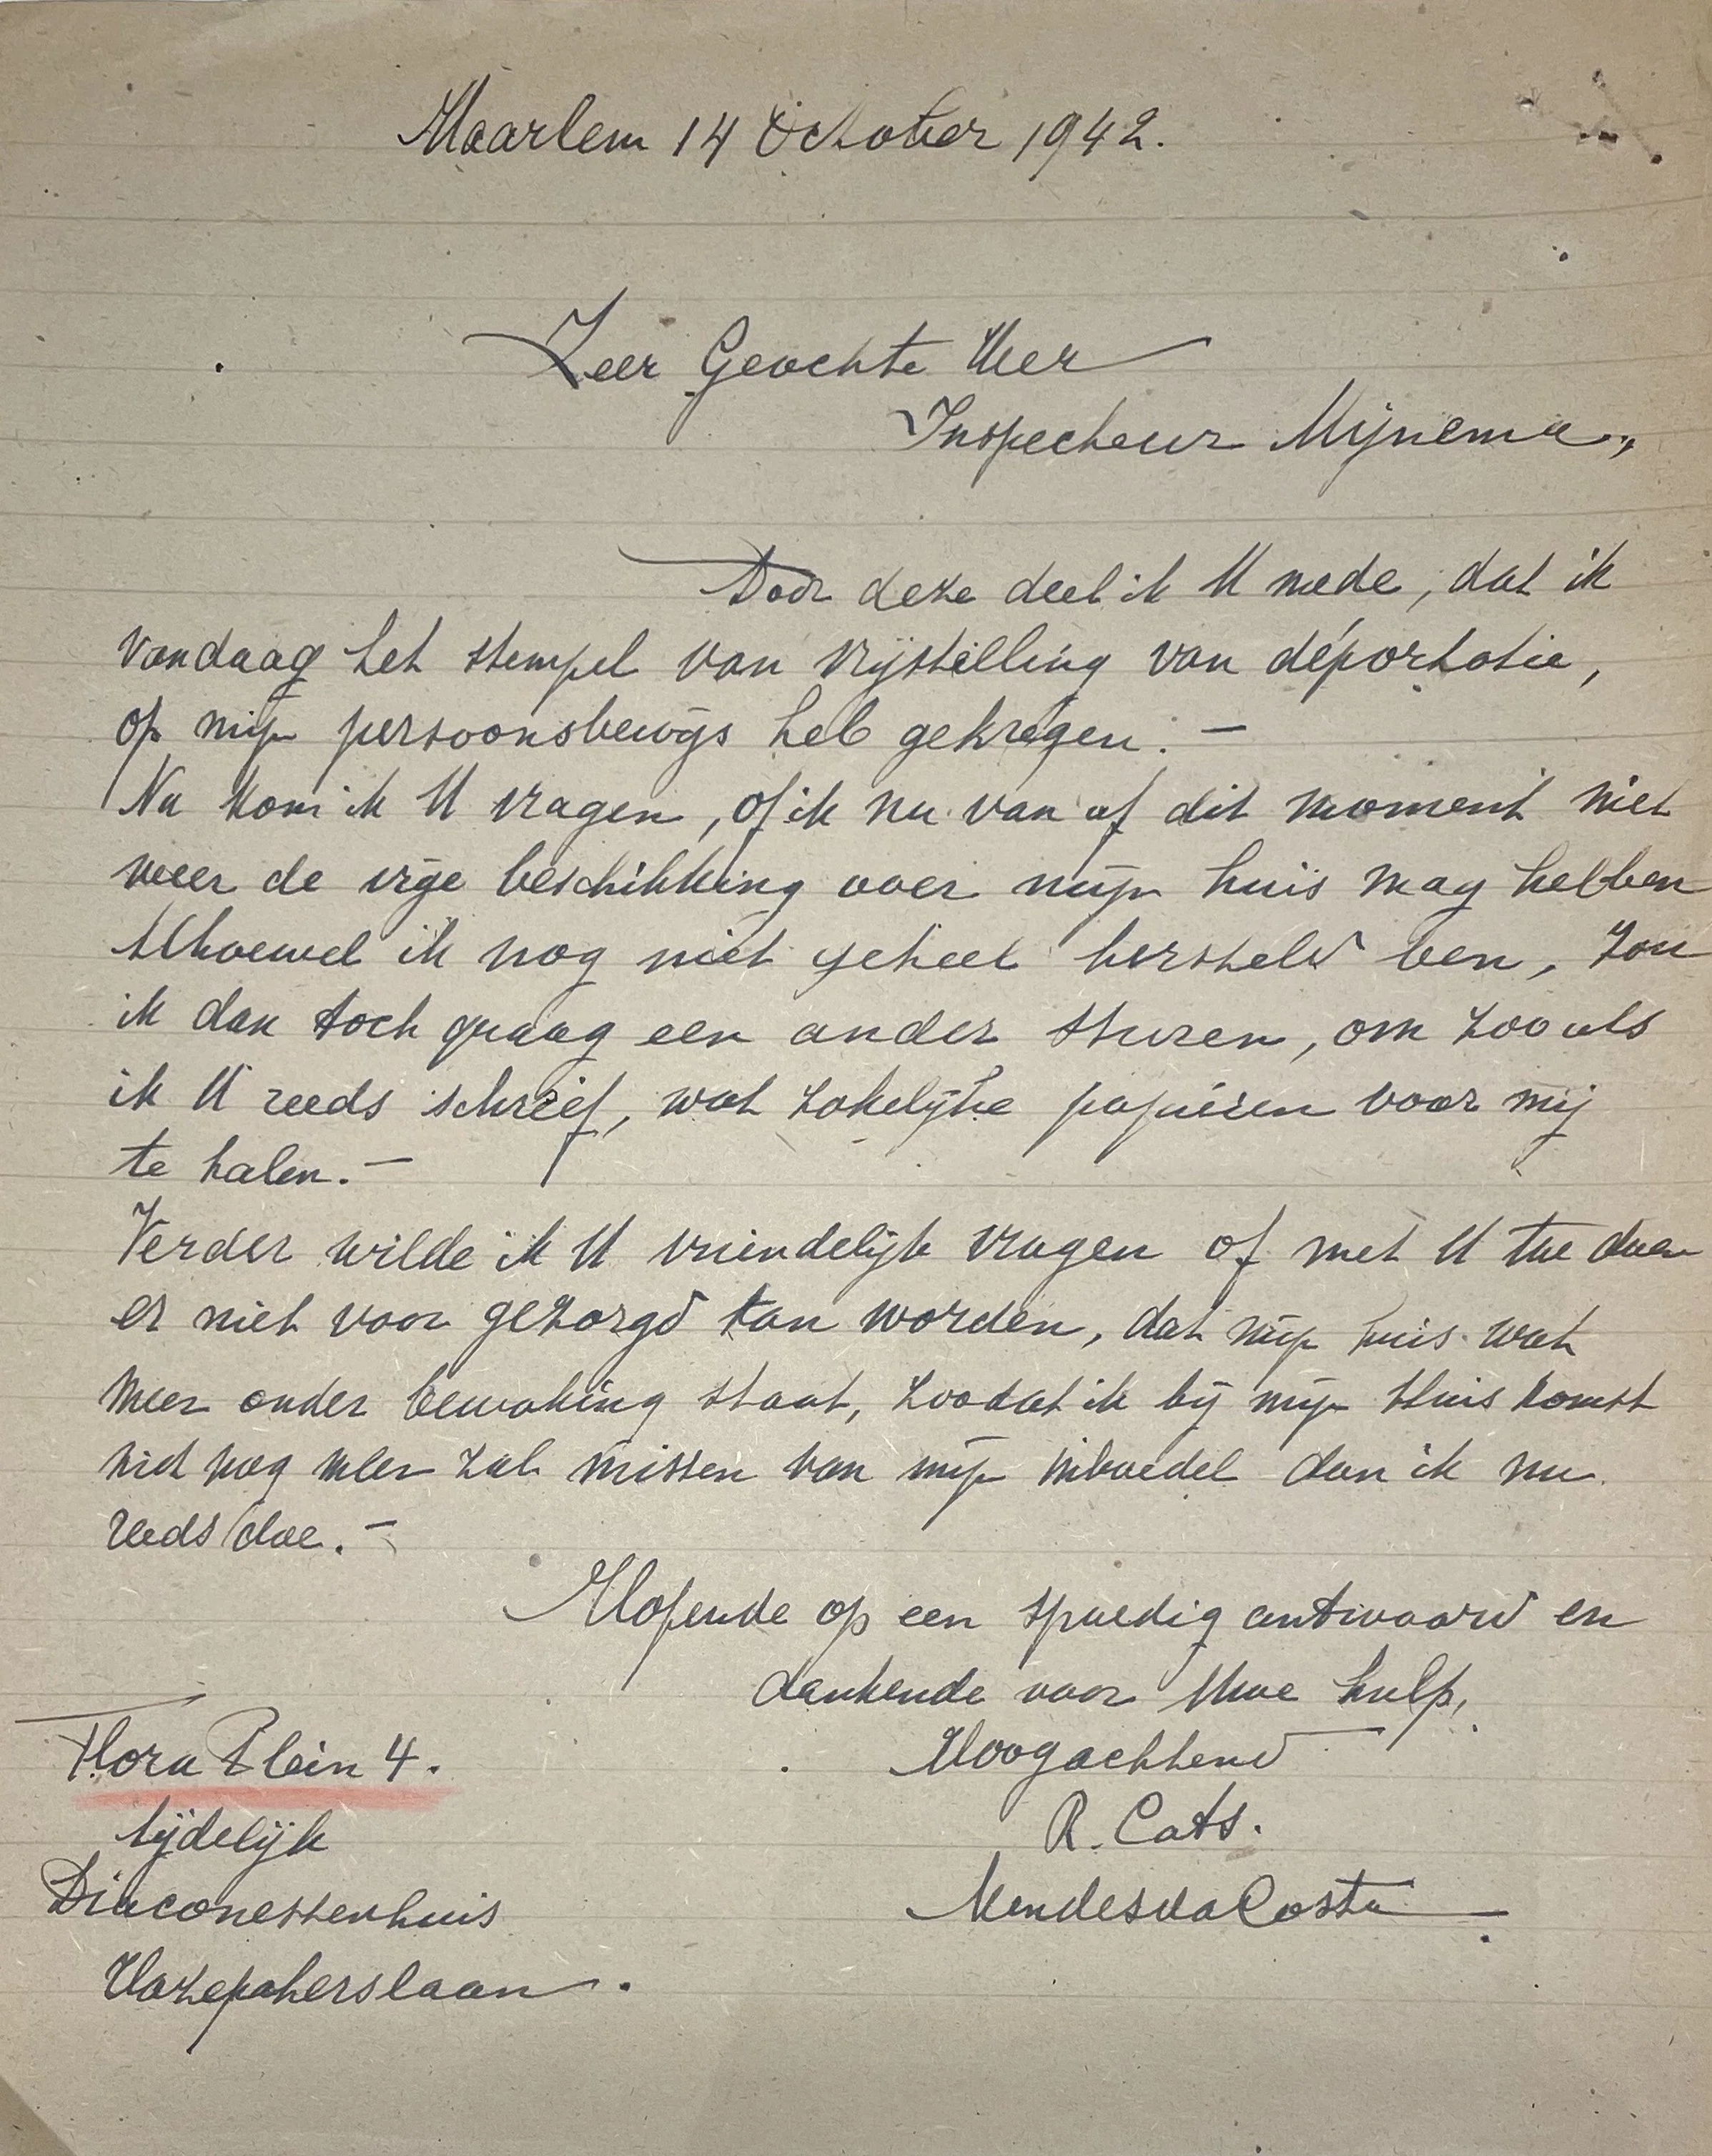 Haarlem 14 October 1942.
Zeer Geachte Heer
Inspecteur Mijnema,,
Door deze deel ik U mede, dat ik
vandaag het stempel van vrijstelling van déportatie,
op mijn persoonsbewijs heb gekregen. –
Nu kom ik U vragen, of ik nu van af dit moment niet
weer de vrije beschikking over mijn huis mag hebben
Alhoewel ik nog niet geheel hersteld ben, zou
ik dan toch graag een ander sturen, om zooals
ik U reeds schreef, wat zakelijke papieren voor mij
te halen. –
Verder wilde ik U vriendelijk vragen of met U toe doen
er niet voor gezorgd kan worden, dat mijn huis wat
meer onder bewaking staat, zoodat ik bij mijn thuis komst
niet nog meer zal missen van mijn inboedel dan ik nu
reeds doe. –
Hopende op een spoedig antwoord en
dankende voor Uwe hulp,
Hoogachtend
R. Cats.
Mendes da Costa
Flora Plein 4.
tijdelijk
Diaconessenhuis
Hazepaterslaan.